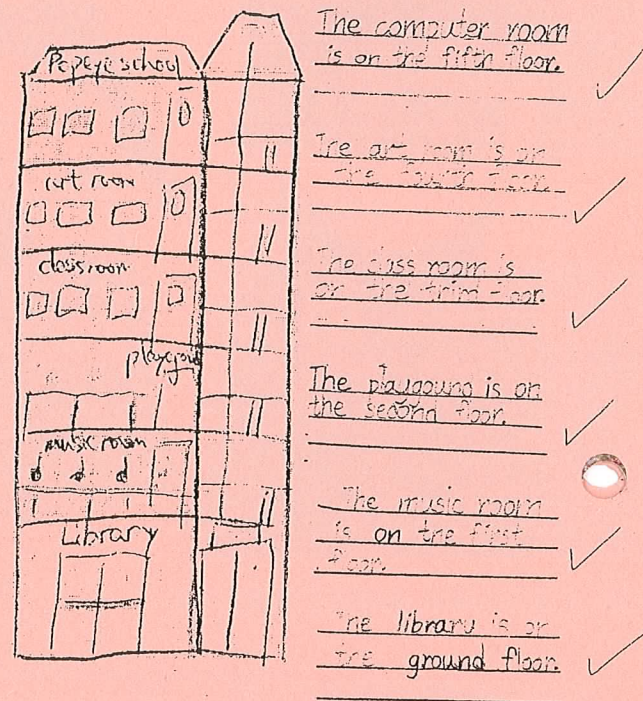 Popeye school
art room
classroom
music room
Library
The computer room
is on the fifth floor.
The art room is on
the floor.
The class room is
on the floor.
The is on
the second floor.
The music room
is on the first
floor.
The library is on
the ground floor.